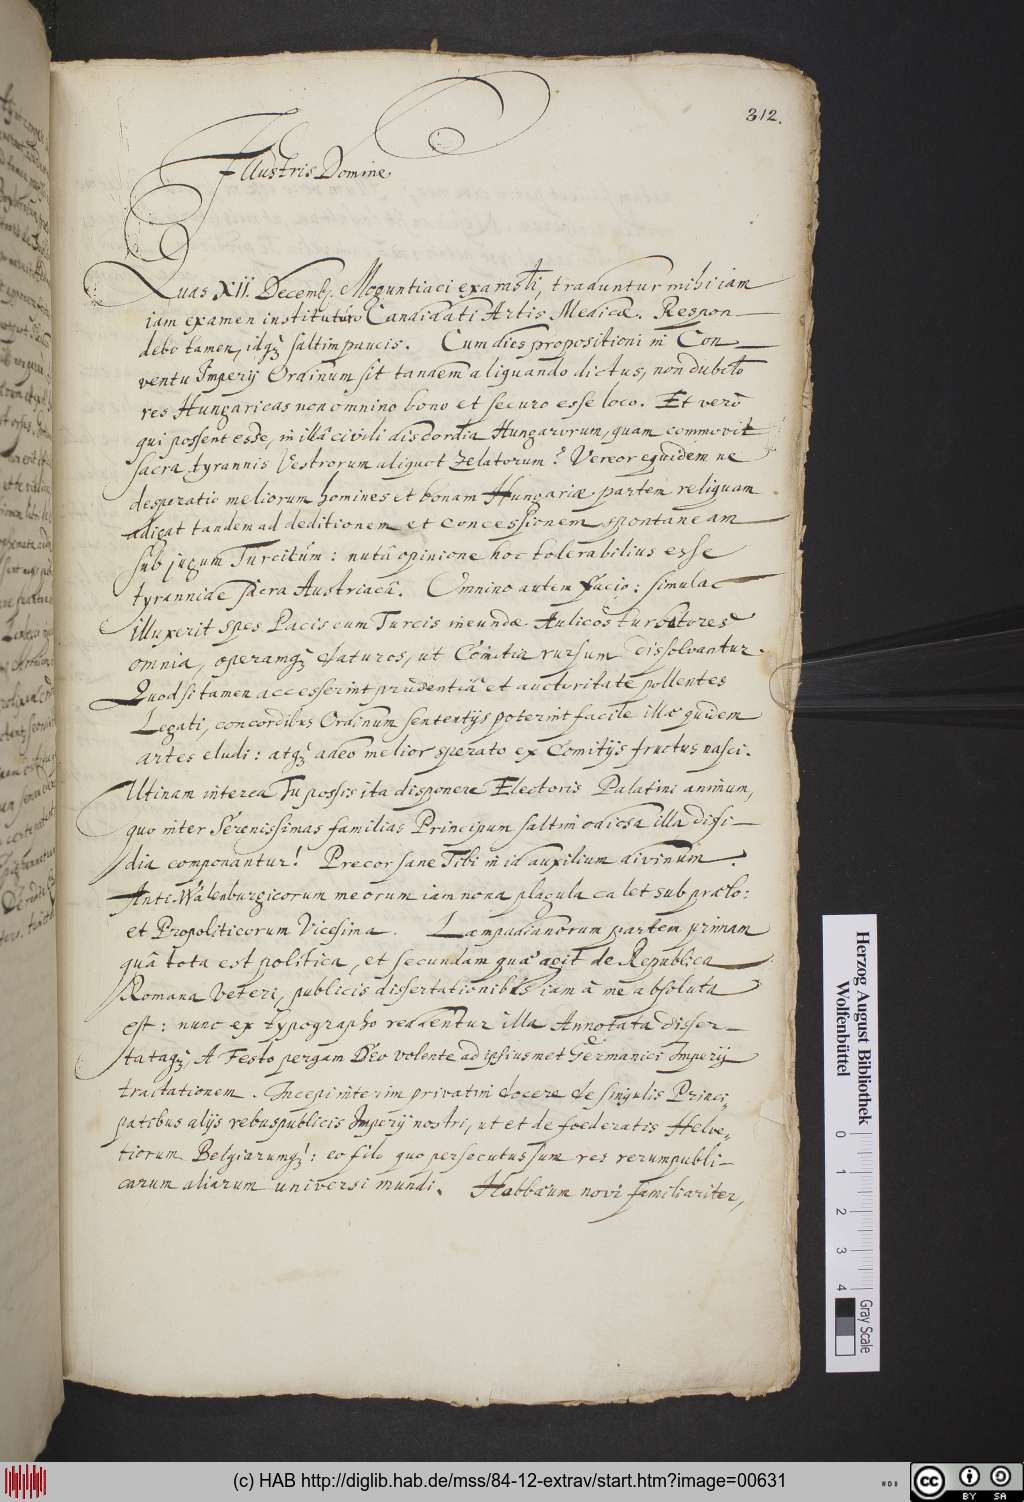 312.
Illustris Domine
Quas XII. Decemb. Moguntiaci exarasti, traduntur mihi iam
iam examen instituturo Candidati Artis Medicæ. Respon-
debo tamen, idq; saltim paucis. Cum dies propositioni in Con-
ventu Imperij Ordinum sit tandem aliquando dictus, non dubito
res Hungaricas non omnino bono et securo esse loco. Et vero
qui possent esse, in illâ civili discordia Hungarorum, quam commovit
sacra tyrannis Vestrorum aliquot zelatorum? Vereor equidem ne
desperatio meliorum homines et bonam Hungariæ partem reliquam
adigat tandem ad deditionem et concessionem spontaneam
sub jugum Turcicum: nutâ opinione hoc tolerabilius esse
tyrannide sacra Austriacâ. Omnino autem facio: simulac
illuxerit spes Pacis cum Turcis ineundæ. Aulicos turbatores
omnia, operamq; daturos, ut Comitia rursum dissolvantur.
Quod si tamen accesserint prudentiâ et auctoritate pollentes
Legati, concordibus Ordinum sententijs poterint facile illæ quidem
artes eludi: atq; adeo melior sperato ex Comitijs fructus nasci.
Utinam interea Tu possis ita disponere Electoris Palatini animum,
quo inter Serenissimas familias Principum saltim odiosa illa dissi-
dia componantur! Precor sane Tibi in id auxilium divinum.
Anti-Walenburgicorum meorum iam nona plagula calet sub prælo:
et Propoliticorum Vicesima. Lampadianorum partem primam
quâ tota est politica, et secundam quâ agit de Republica
Romana Veteri, publicis dissertationibus iam â me absoluta
est: nunc ex typographo redeentur illa Annotata disser-
tataq;, A Festo pergam Deo volente ad ipsiusmet Germanici Imperij
tractationem. Incepi interim privatim docere de singulis Princi-
patibus alijs rebuspublicis Imperij nostri, ut et de foederatis Helve-
tiorum Belgiarumq;: eo filo quo persecutus sum res rerumpubli-
carum aliarum universi mundi. Habbæum novi familiariter,
Herzog August Bibliothek
Wolfenbüttel
0 1 2 3 4
Gray Scale
(c) HAB http://diglib.hab.de/mss/84-12-extrav/start.htm?image=00631
WDB
cc BY SA